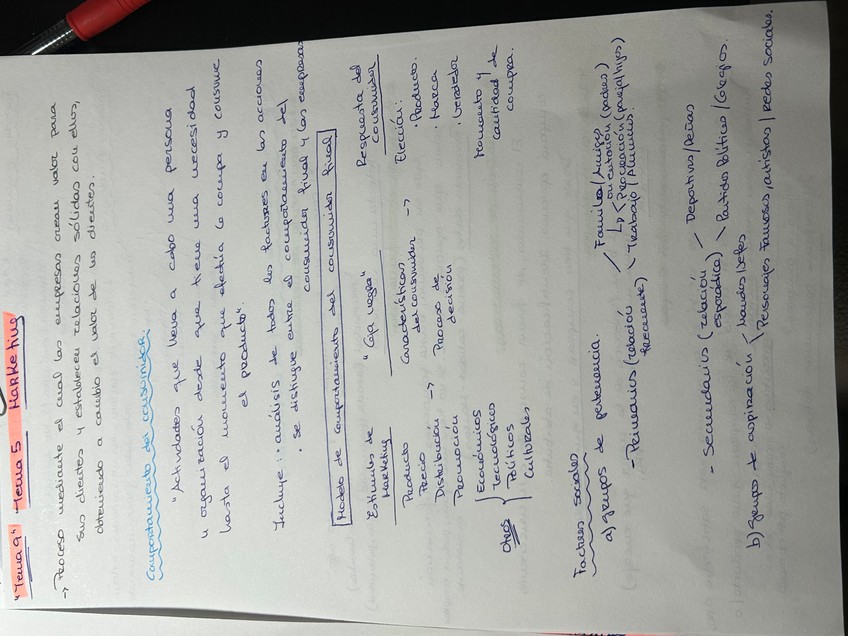 "Tema 9" "Tema 5 Marketing
-> Proceso mediante el cual las empresas crean valor para
sus clientes y establecen relaciones sólidas con ellos,
obteniendo a cambio el valor de los clientes.
Comportamiento del consumidor.
"Actividades que lleva a cabo una persona
u organización desde que tiene una necesidad
hasta el momento que efectúa la compra y consume
el producto".
Incluye: · análisis de todos los factores en las acciones
· se distingue entre el comportamiento del
consumidor final y las empresas
Modelo de comportamiento del consumidor final
Estímulos de Marketing
Producto
Precio
Distribución ->
Promoción
Otros { Económicos
Tecnológicos
Políticos
Culturales
"Caja negra"
Características
del consumidor ->
Proceso de
decisión
Respuesta del
consumidor
Elección:
· Producto.
· Marca
· Vendedor
Momento y
cantidad de
compra.
Factores sociales
a) grupos de pertenencia.
- Primarios (relación frecuente) / Familia/Amigos
orientación (padres)
Procreación (pareja/hijos)
Trabajo/Alumnos.
- Secundarios (relación esporádica) / Deportivo/Peñas
\ Partido Político/Colegios.
b) grupo de aspiración / Mandos/Jefes
\ Personajes famosos, artistas/redes sociales.